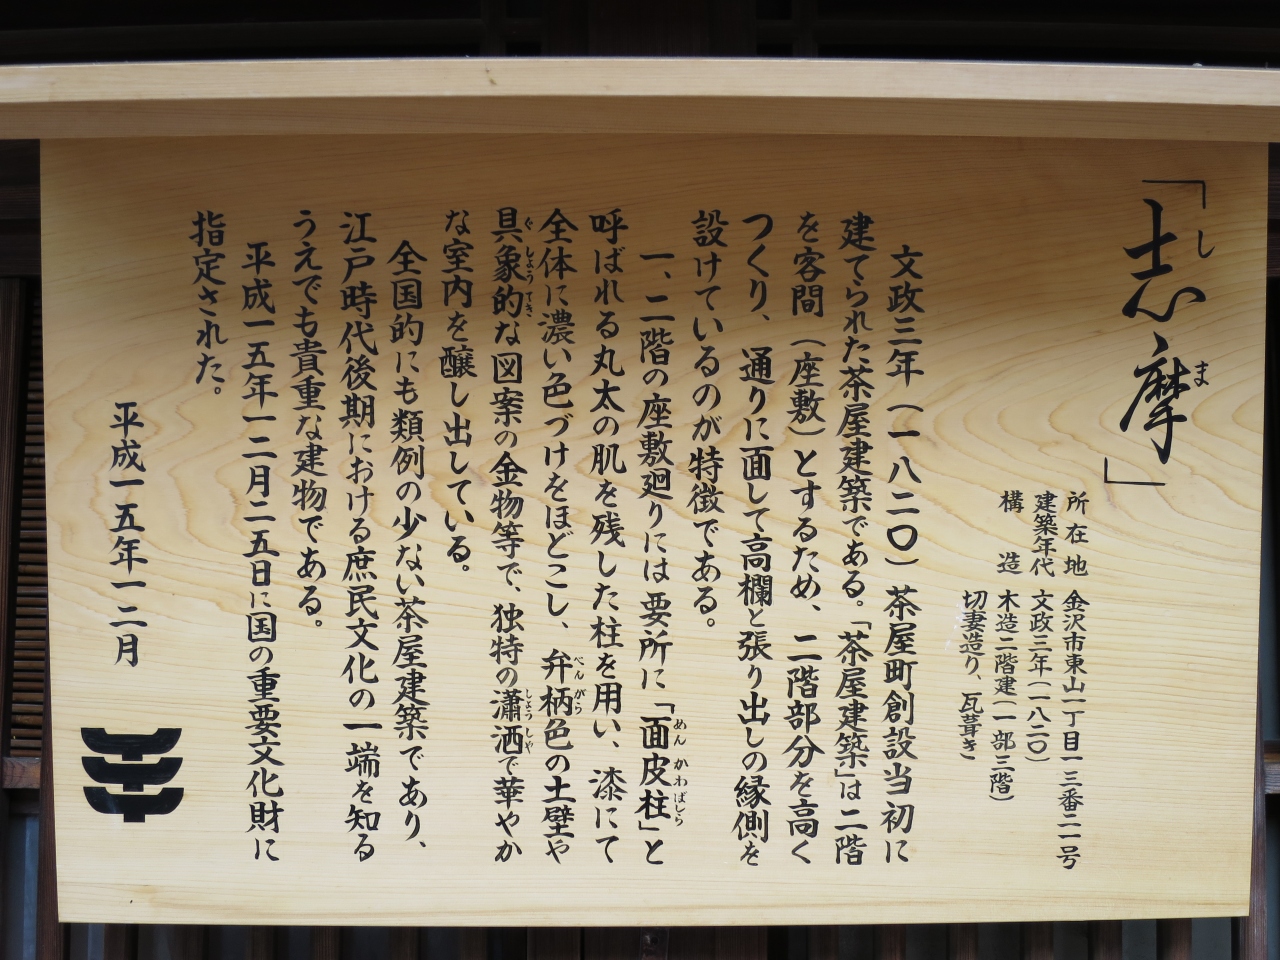 「志摩」
しま
所在地 金沢市東山一丁目一三番二一号
建築年代 文政三年(一八二〇)
構造 木造二階建(一部三階)
切妻造り、瓦葺き
文政三年(一八二〇)茶屋町創設当初に
建てられた茶屋建築である。「茶屋建築」は二階
を客間(座敷)とするため、二階部分を高く
つくり、通りに面して高欄と張り出しの縁側を
設けているのが特徴である。
一、二階の座敷廻りには要所に「面皮柱」と
めんかわばしら
呼ばれる丸太の肌を残した柱を用い、漆にて
全体に濃い色づけをほどこし、弁柄色の土壁や
べんがら
具象的な図案の金物等で、独特の瀟洒で華やか
ぐしょうてき しょうしゃ
な室内を醸し出している。
全国的にも類例の少ない茶屋建築であり、
江戸時代後期における庶民文化の一端を知る
うえでも貴重な建物である。
平成一五年一二月二五日に国の重要文化財に
指定された。
平成一五年一二月